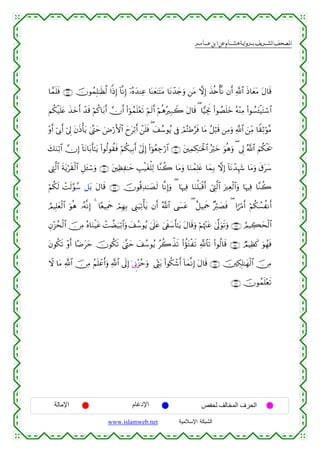 المصحف الشريف برواية هشام عن ابن عامر
قَالَ مَعَاذَ ٱللَّهِ أَن نَّأْخُذَ إِلَّا مَن وَجَدْنَا مَتَٰعَنَا عِندَهُۥٓ إِنَّآ إِذًا لَّظَٰلِمُونَ ۝ فَلَمَّا
ٱسْتَيْـَٔسُوا۟ مِنْهُ خَلَصُوا۟ نَجِيًّا ۖ قَالَ كَبِيرُهُمْ أَلَمْ تَعْلَمُوٓا۟ أَنَّ أَبَاكُمْ قَدْ أَخَذَ عَلَيْكُم
مَّوْثِقًا مِّنَ ٱللَّهِ وَمِن قَبْلُ مَا فَرَّطتُمْ فِى يُوسُفَ ۖ فَلَنْ أَبْرَحَ ٱلْأَرْضَ حَتَّىٰ يَأْذَنَ لِىٓ أَبِىٓ أَوْ
يَحْكُمَ ٱللَّهُ لِى ۖ وَهُوَ خَيْرُ ٱلْحَٰكِمِينَ ۝ ٱرْجِعُوٓا۟ إِلَىٰٓ أَبِيكُمْ فَقُولُوا۟ يَٰٓأَبَانَآ إِنَّ ٱبْنَكَ
سَرَقَ وَمَا شَهِدْنَآ إِلَّا بِمَا عَلِمْنَا وَمَا كُنَّا لِلْغَيْبِ حَٰفِظِينَ ۝ وَسْـَٔلِ ٱلْقَرْيَةَ ٱلَّتِى
كُنَّا فِيهَا وَٱلْعِيرَ ٱلَّتِىٓ أَقْبَلْنَا فِيهَا ۖ وَإِنَّا لَصَٰدِقُونَ ۝ قَالَ بَلْ سَوَّلَتْ لَكُمْ
أَنفُسُكُمْ أَمْرًا ۖ فَصَبْرٌ جَمِيلٌ ۖ عَسَى ٱللَّهُ أَن يَأْتِيَنِى بِهِمْ جَمِيعًا ۚ إِنَّهُۥ هُوَ ٱلْعَلِيمُ
ٱلْحَكِيمُ ۝ وَتَوَلَّىٰ عَنْهُمْ وَقَالَ يَٰٓأَسَفَىٰ عَلَىٰ يُوسُفَ وَٱبْيَضَّتْ عَيْنَاهُ مِنَ ٱلْحُزْنِ
فَهُوَ كَظِيمٌ ۝ قَالُوا۟ تَٱللَّهِ تَفْتَؤُا۟ تَذْكُرُ يُوسُفَ حَتَّىٰ تَكُونَ حَرَضًا أَوْ تَكُونَ
مِنَ ٱلْهَٰلِكِينَ ۝ قَالَ إِنَّمَآ أَشْكُوا۟ بَثِّى وَحُزْنِىَ إِلَى ٱللَّهِ وَأَعْلَمُ مِنَ ٱللَّهِ مَا لَا
تَعْلَمُونَ ۝
الحرف المخالف لحفص الإدغام الإمالة
www.islamweb.net الشبكة الإسلامية